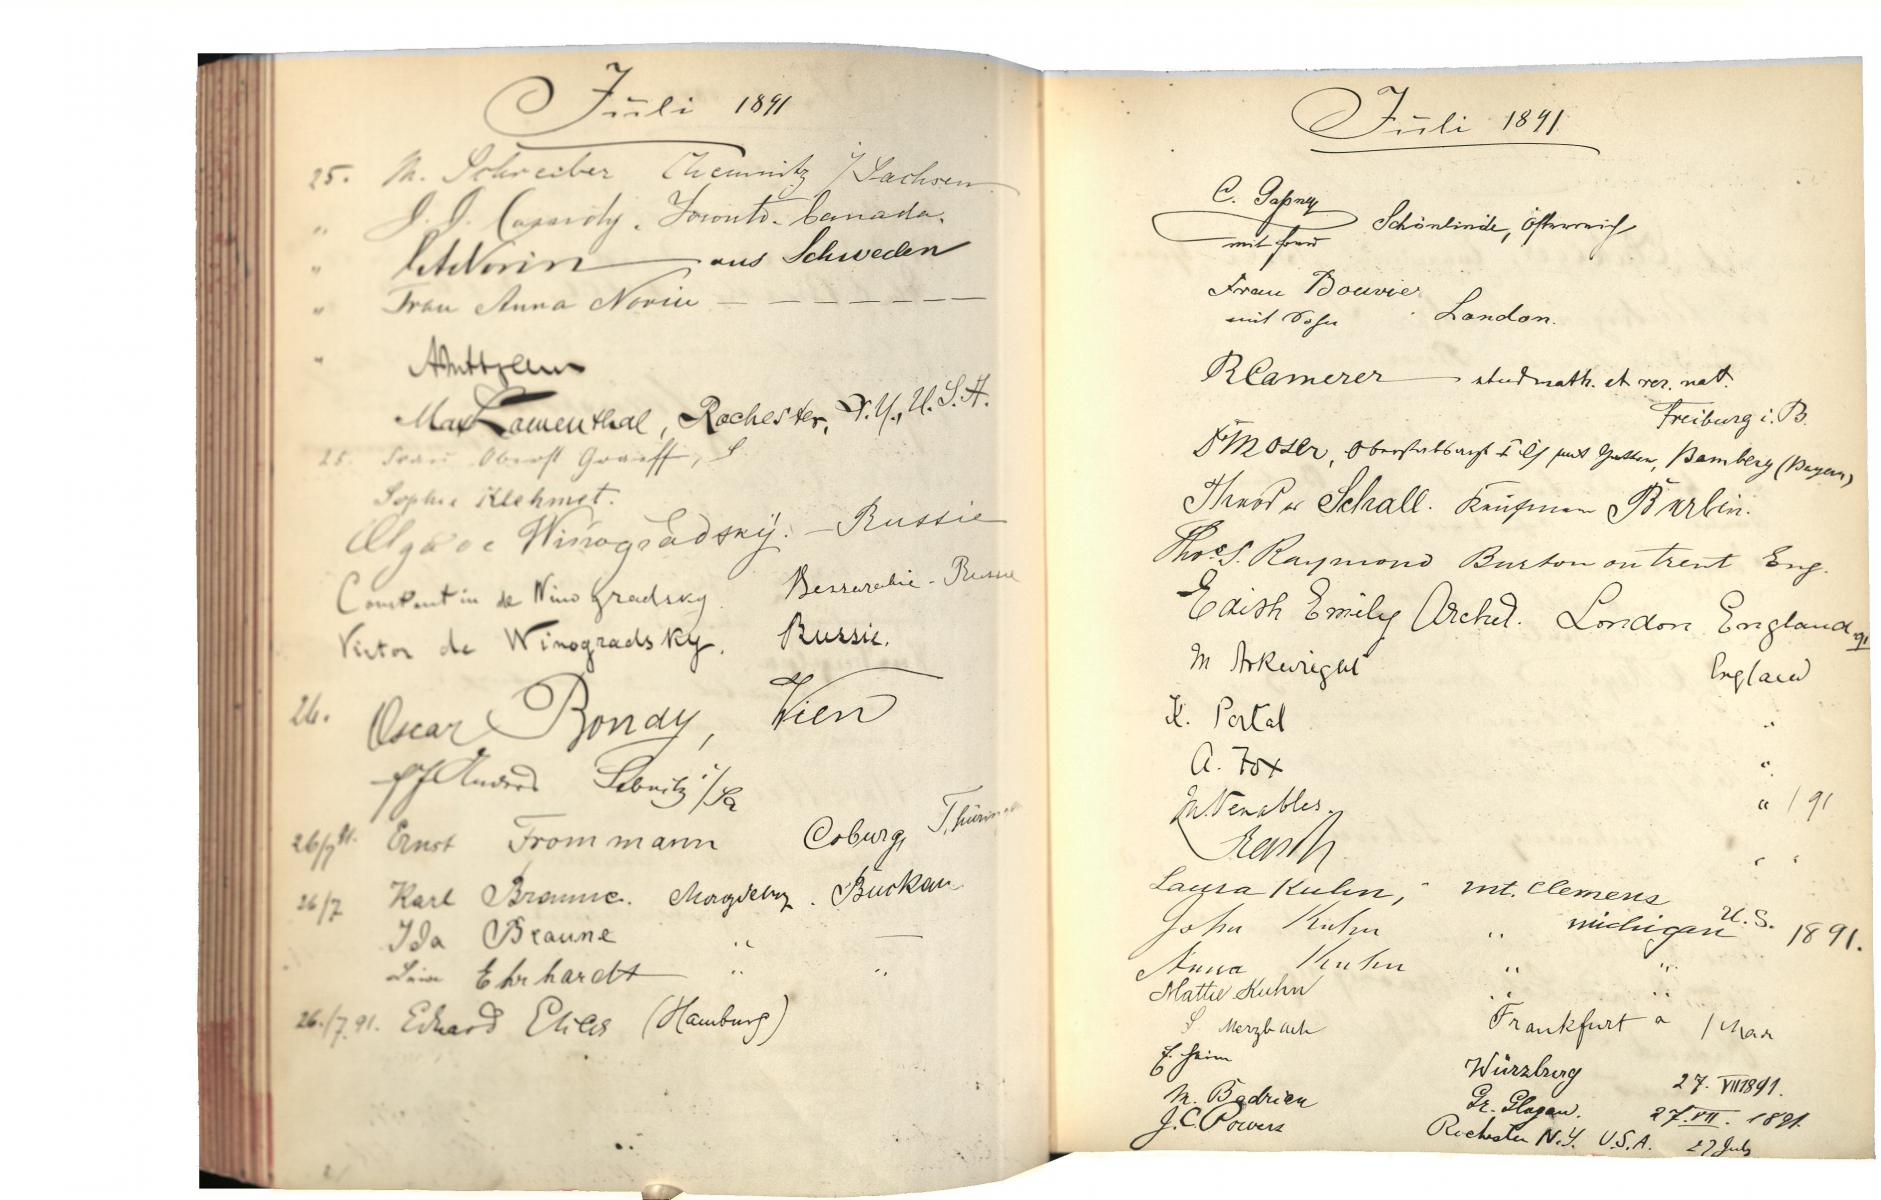 Juli 1891
25. M. Schreiber Chemnitz i/Sachsen
" J. J. Cassidy. Toronto. Canada.
" Norin aus Schweden
" Frau Anna Norin — — — — — — —
"
Max Lowenthal, Rochester, N.Y., U.S.A.
25. Frau Oberst Graeff,
Sophie Klehmet.
Olga de Winogradsky. — Russie
Constantin de Winogradsky. Bessarabie - Russie
Victor de Winogradsky. Russie.
26. Oscar Bondy, Wien
Sebnitz i/Sa
26/7 91. Ernst Frommann Coburg, Thüringen
26/7 Karl Braune. Magdeburg. Buckau
Ida Braune " —
Ehrhardt " "
26./7.91. Eduard Elias (Hamburg)
Juli 1891
C. Schönlinde, Österreich
mit Frau
Frau Bouvier
mit Sohn London.
R Camerer stud math. et rer. nat.
Freiburg i. B.
Dr Moser, Bamberg (Bayern)
Theodor Schall. Kaufmann Berlin.
Thos. S. Raymond Burton on trent Eng.
Edith Emily Archel. London England 91
M Arkwright England
K. Portal "
A. Fox "
M. Venables. " / 91
" "
Laura Kuhn, mt. Clemens
John Kuhn " michigan U.S. 1891.
Anna Kuhn " "
Mattie Kuhn " "
S Merzbach Frankfurt a / Main
Würzburg 27. VII 1891.
M. Badrian Gr. Glogau. 27. VII. 1891.
J.C. Powers Rochester N.Y. U.S.A. 27 July